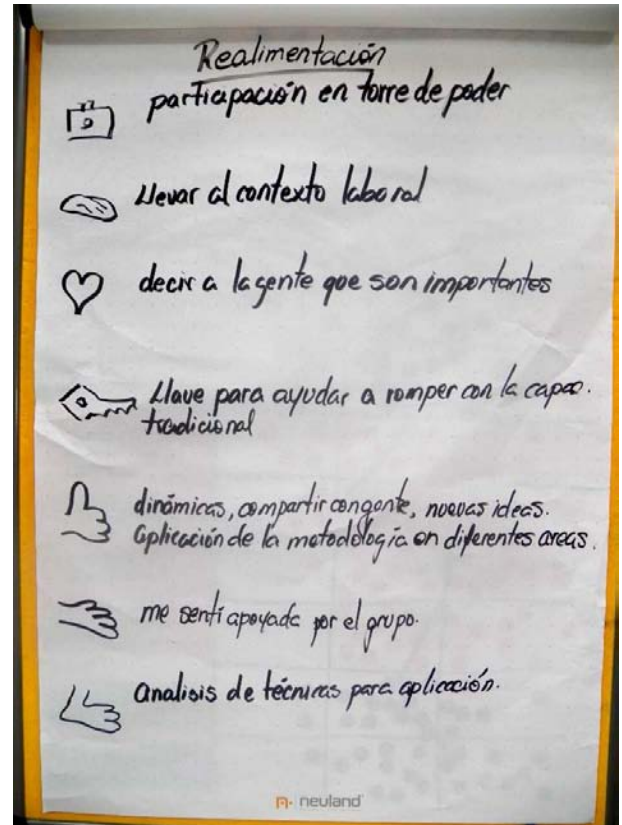 Realimentación
participación en torre de poder
Llevar al contexto laboral
decir a la gente que son importantes
Llave para ayudar a romper con la capac.
tradicional
dinámicas, compartir con gente, nuevas ideas.
Aplicación de la metodología en diferentes areas.
me sentí apoyada por el grupo.
Analisis de técnicas para aplicación.
neuland